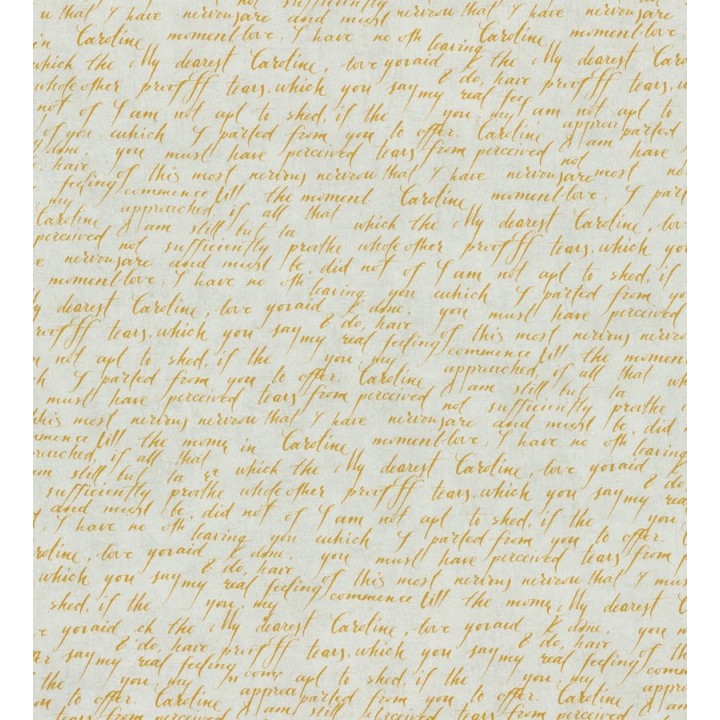 and must nervous that I have nervousare
in Caroline moment love, I have no oth leaving Caroline moment love,
which the My dearest Caroline, love yoraid & the My dearest Caro
whole other proof ff tears, which you say my real fee & do, have proof ff tears,
not of I am not apt to shed, if the you, my am not apt to
of you which I parted from you to offer. Caroline approa parted
& done. you must have perceived tears from perceived not & am have
& have feeling of this most nervous nervous that I have nervousare most no
my commence till the moment Caroline moment love, I part
Caroline approached, if all that which the My dearest Caroline, lov
perceived & am still but ta whole other proof ff tears, which yo
not sufficiently preothe
nervousare and must be, did not of I am not apt to shed, if
moment love, I have no oth leaving you which I parted from yo
dearest Caroline, love yoraid & done. you must have perceived
proof ff tears, which you say my real feeling & do, have of this most nervous nervou
not apt to shed, if the you, my commence till the momen
I parted from you to offer. Caroline approached, if all that
must have perceived tears from perceived & am still but ta
this most nervous nervous that I have not sufficiently preothe
nervousare and must be, did n
mmence till the mome in Caroline moment love, I have no oth leaving
roached, if all that which the My dearest Caroline, love yoraid &
am still but ta whole other proof ff tears, which you say my rea & do,
sufficiently preothe
and must be, did not of I am not apt to shed, if the you,
I have no oth leaving you which I parted from you to offer.
roline, love yoraid & done. you must have perceived tears from p
which you say my real feeling & do, have of this most nervous nervous that I mus
shed, if the you, my commence till the mome My dearest C
yoraid ch the My dearest Caroline, love yoraid & done. you
say my real feeling & do, have proof ff tears, which you say my real feeling & do, have of th
the you, my apt to shed, if the you, my comm
to offer. Caroline approa parted from you to offer. Caroline
tears from perceived & am still perceived tears from perceived